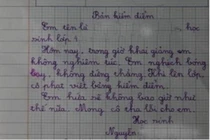 Bản kiểm điểm
Em tên là học
sinh lớp
Hôm nay, trong giờ khai giảng em
không nghiêm túc. Em nghịch bóng
bay, không đứng thẳng. Khi lên lớp
cô phạt viết bảng kiểm điểm.
Em hứa sẽ không bao giờ như
thế nữa. Mong cô tha lỗi cho em.
Học sinh
Nguyên